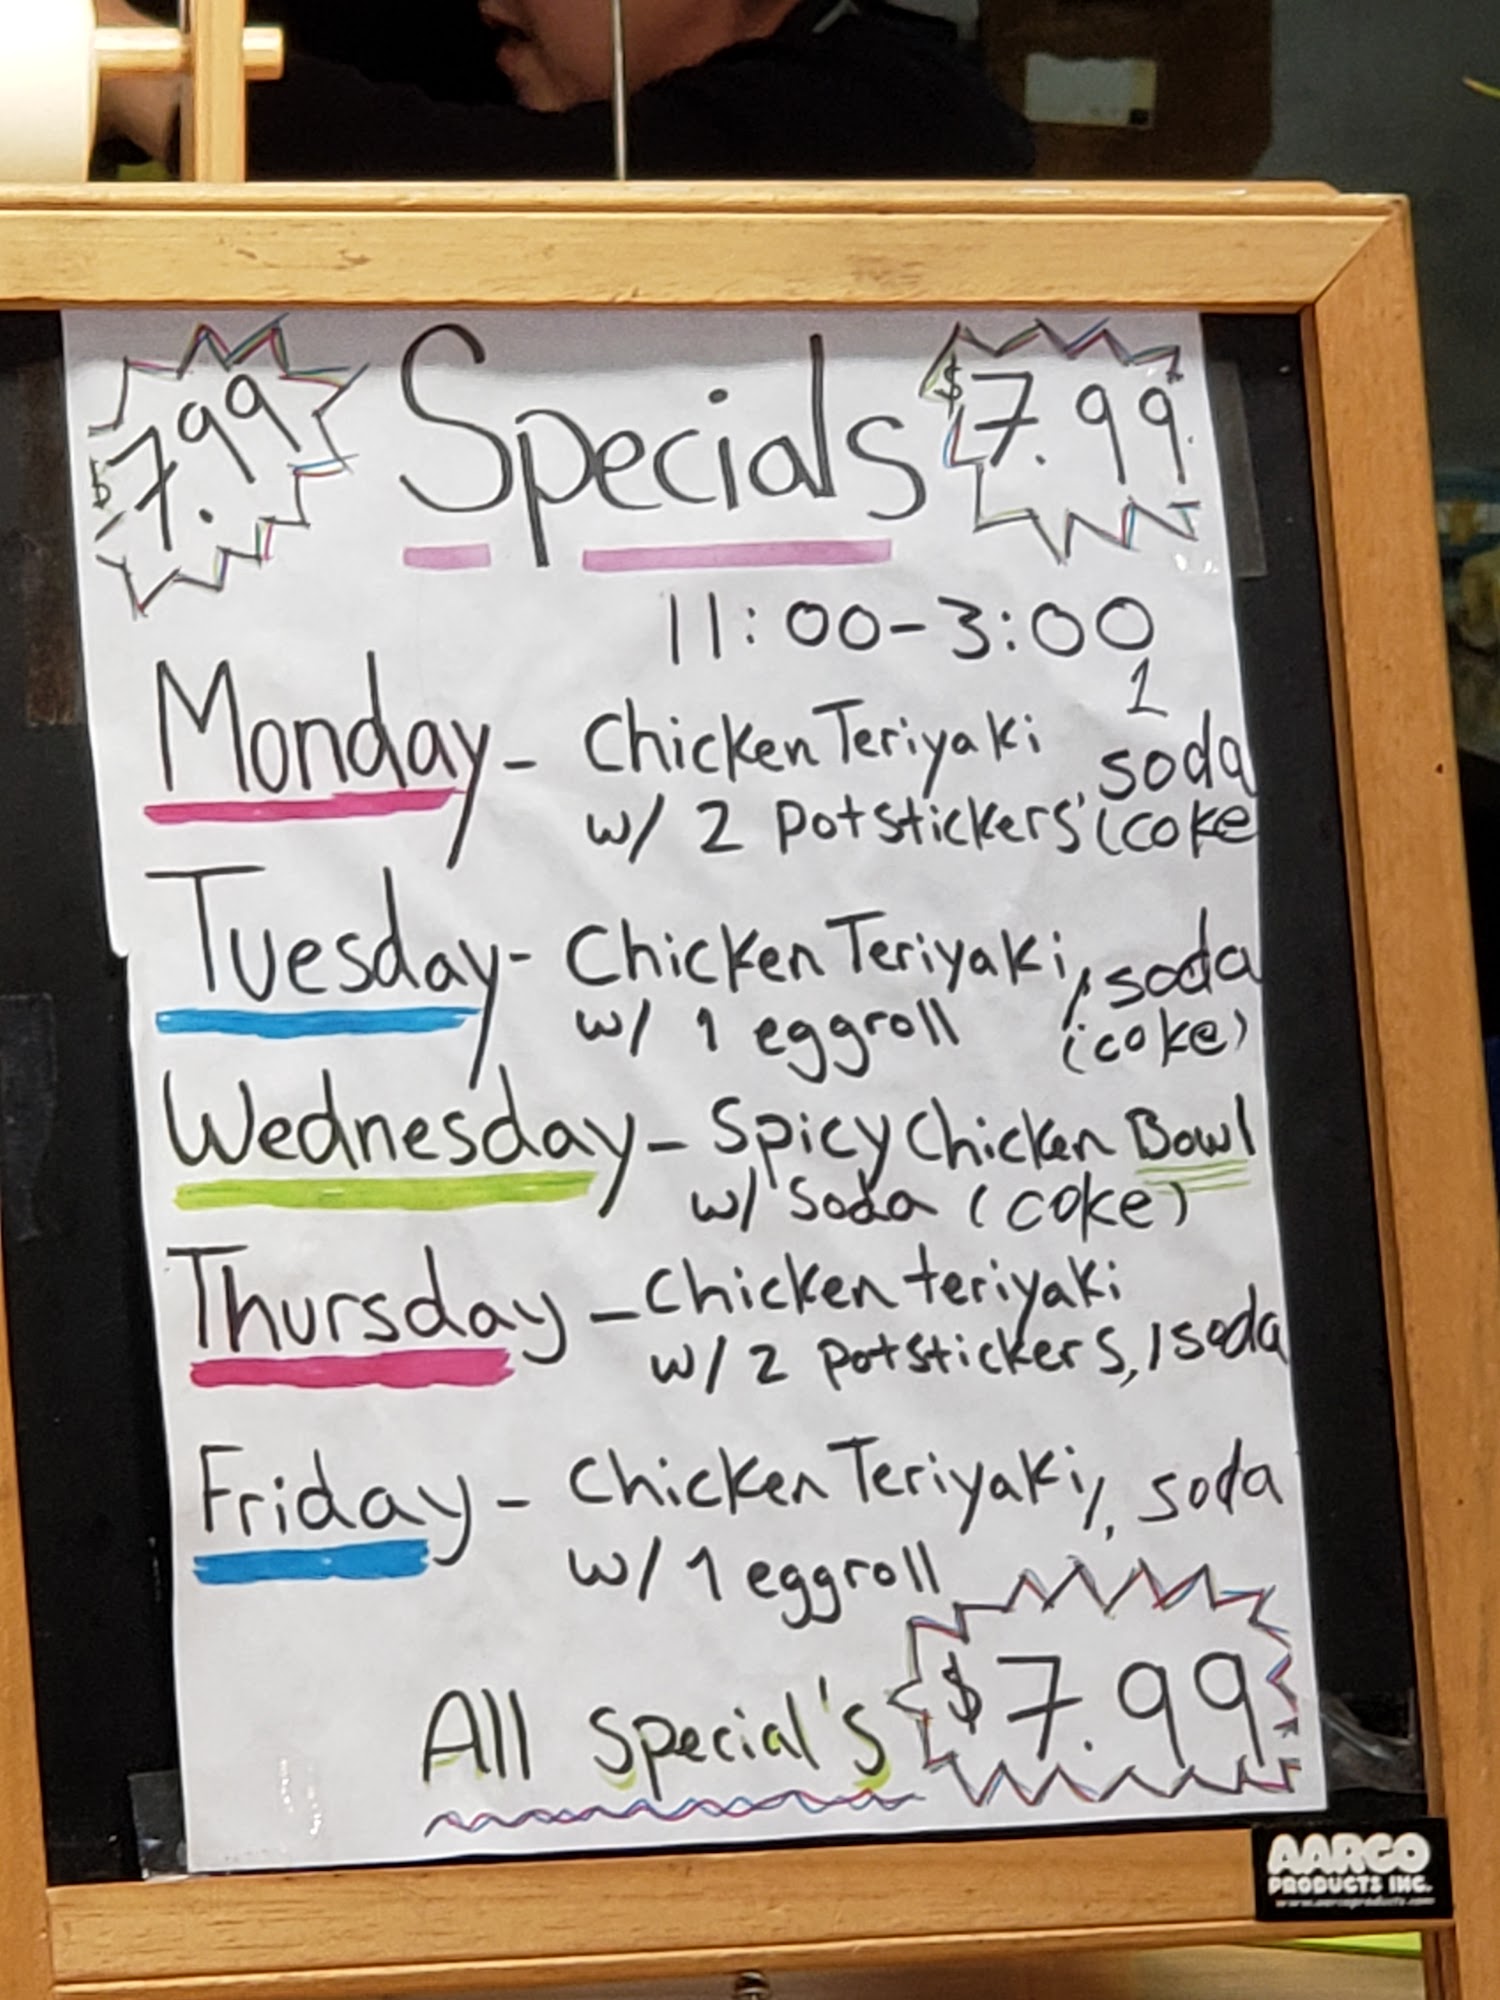 $7.99 Specials $7.99
11:00-3:00
Monday - Chicken Teriyaki, 1 soda
w/ 2 potstickers (coke
Tuesday - Chicken Teriyaki, soda
w/ 1 eggroll (coke)
Wednesday - Spicy Chicken Bowl
w/ soda (coke)
Thursday - Chicken teriyaki
w/ 2 potstickers, 1 soda
Friday - Chicken Teriyaki, soda
w/ 1 eggroll
All special's $7.99
AARCO
PRODUCTS INC.
www.aarcoproducts.com